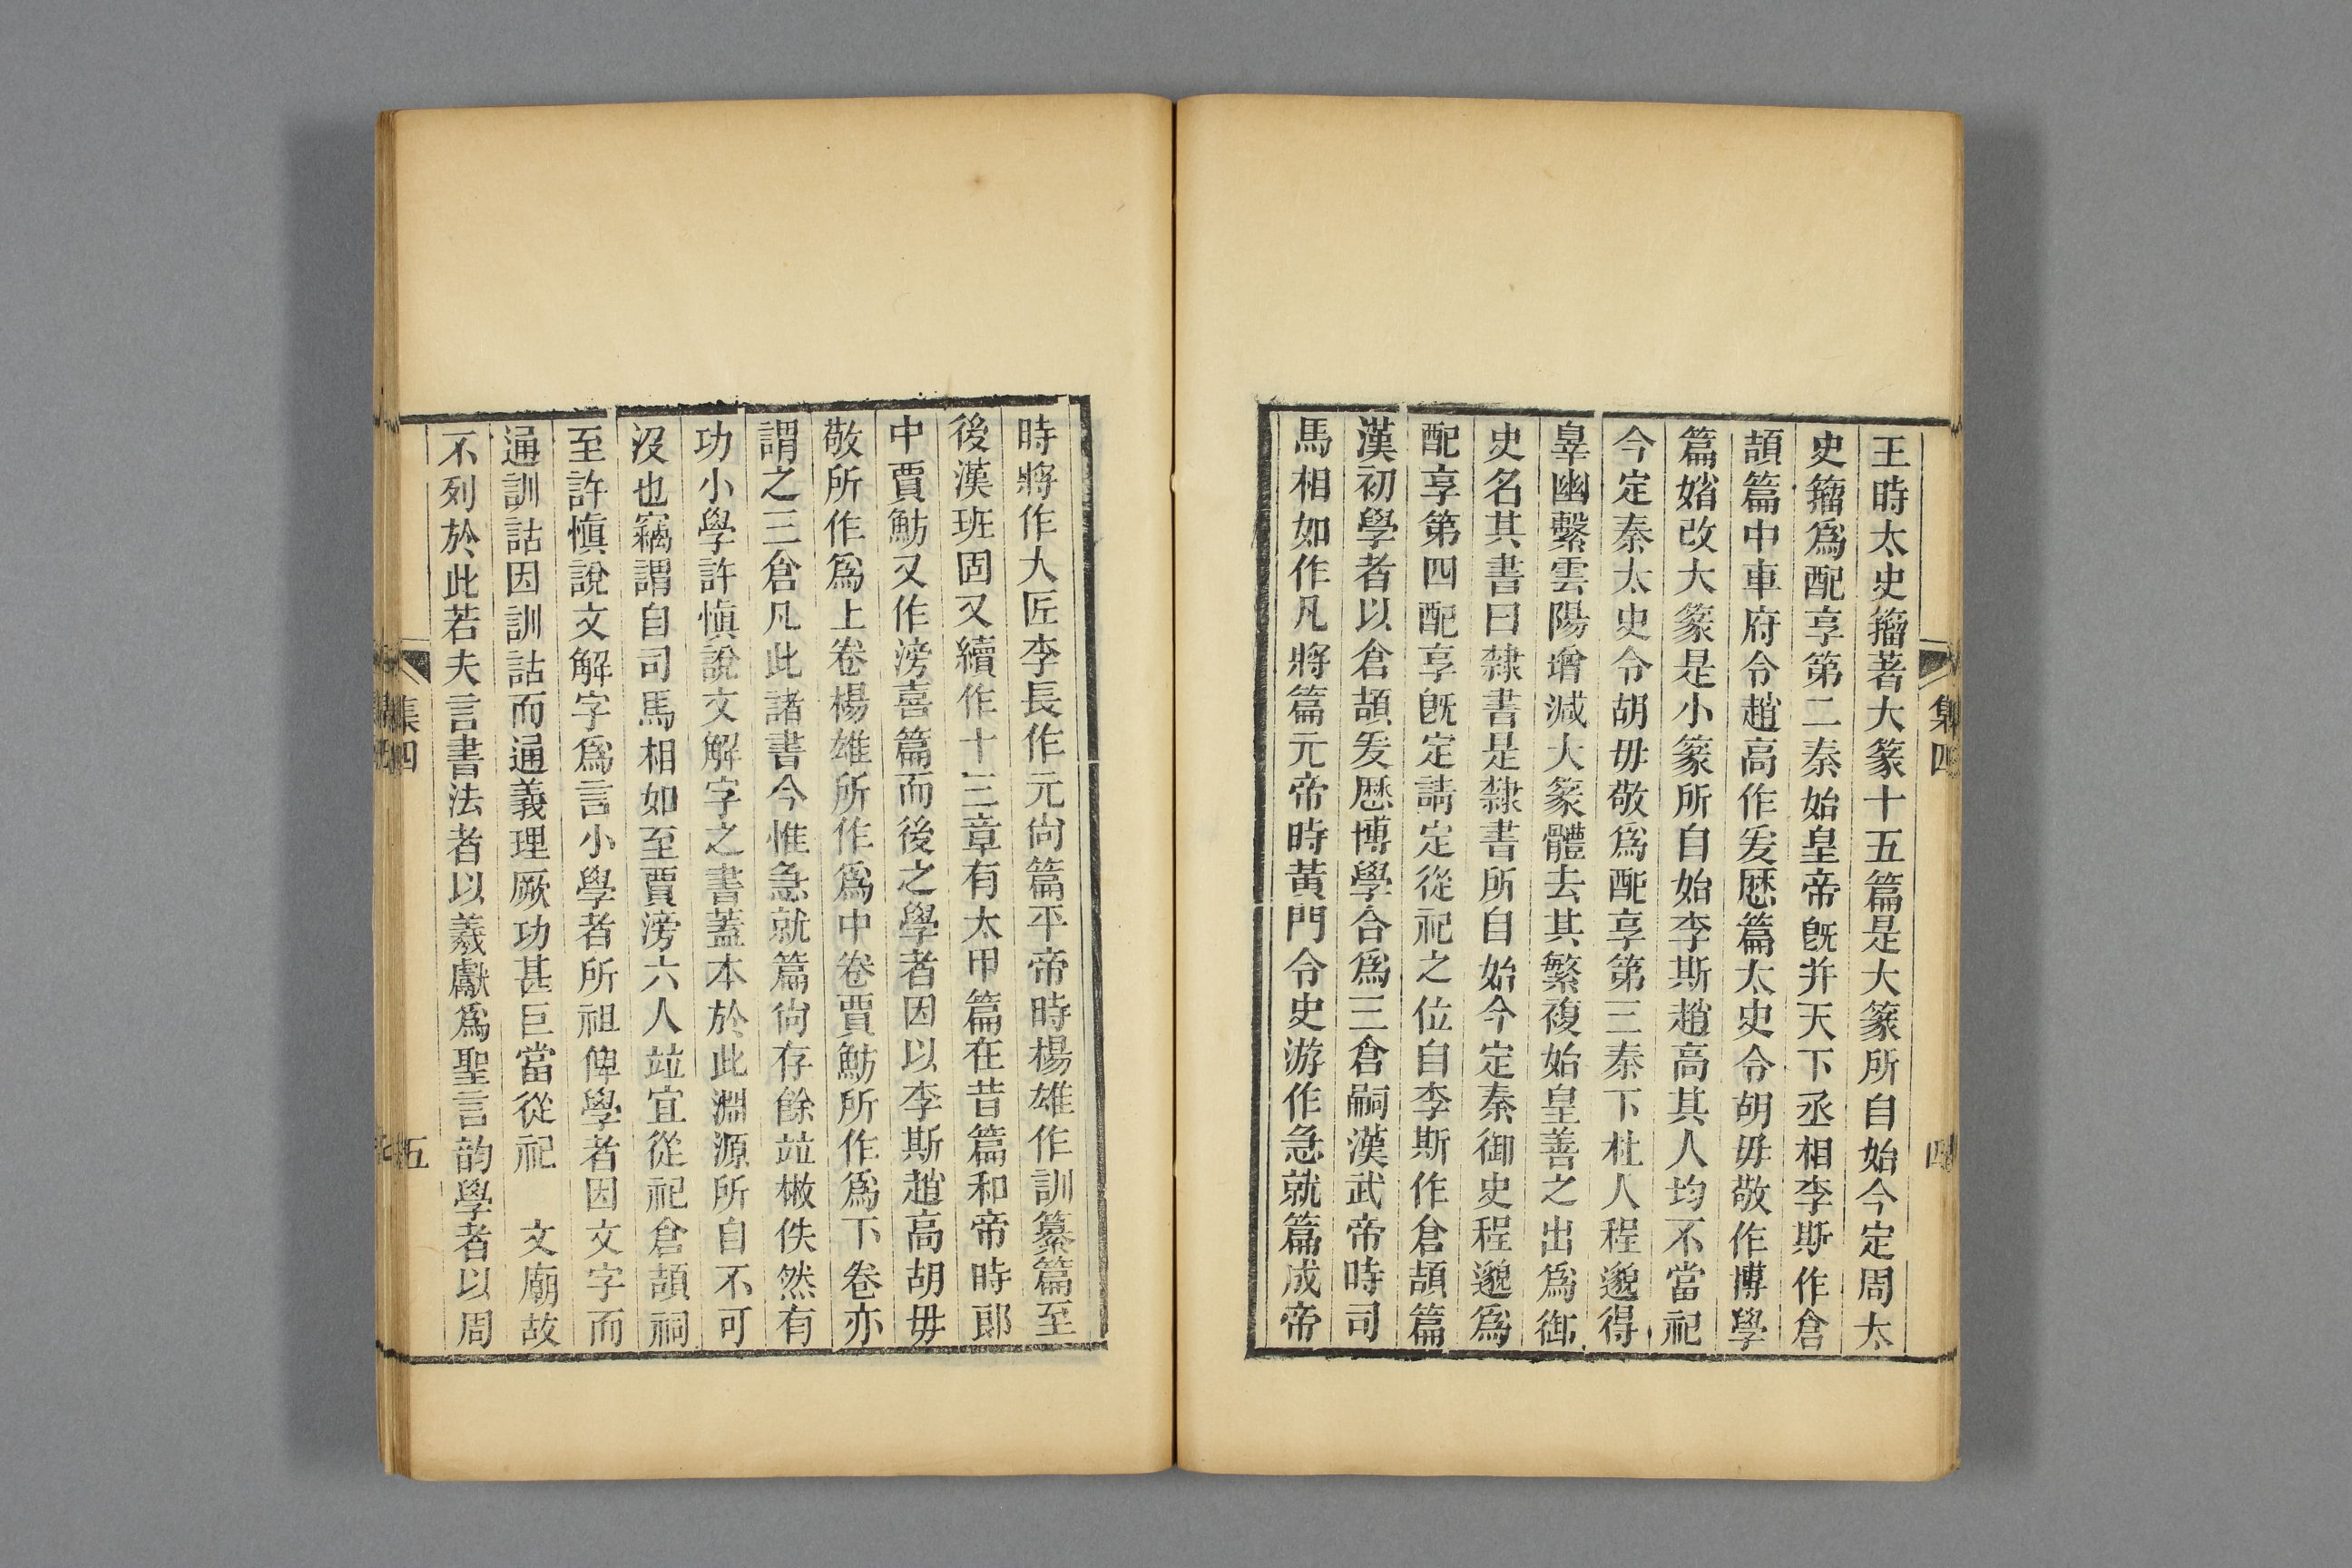 王時太史籀著大篆十五篇是大篆所自始今定周太
史籀爲配享第二秦始皇帝旣并天下丞相李斯作倉
頡篇中車府令趙高作爰厯篇太史令胡毋敬作博學
篇媘改大篆是小篆所自始李斯趙高其人均不當祀
今定秦太史令胡毋敬爲配享第三秦下杜人程邈得
辠幽繫雲陽增減大篆體去其繁複始皇善之出爲御
史名其書曰隸書是隸書所自始今定秦御史程邈爲
配享第四配享旣定請定從祀之位自李斯作倉頡篇
漢初學者以倉頡爰厯博學合爲三倉嗣漢武帝時司
馬相如作凡將篇元帝時黃門令史游作急就篇成帝
集四
四
時將作大匠李長作元尙篇平帝時楊雄作訓纂篇至
後漢班固又續作十三章有太甲篇在昔篇和帝時郞
中賈魴又作滂喜篇而後之學者因以李斯趙高胡毋
敬所作爲上卷楊雄所作爲中卷賈魴所作爲下卷亦
謂之三倉凡此諸書今惟急就篇尙存餘竝櫢佚然有
功小學許愼說文解字之書蓋本於此淵源所自不可
沒也竊謂自司馬相如至賈滂六人竝宜從祀倉頡祠
至許愼說文解字爲言小學者所祖俾學者因文字而
通訓詁因訓詁而通義理厥功甚巨當從祀　文廟故
不列於此若夫言書法者以羲獻爲聖言韵學者以周
集四
五